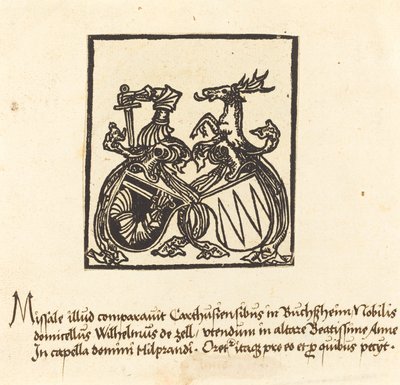 Missale illud comparavit Carthusiensibus in Buchßheim, Nobilis
domicellus Wilhelmus de zell / utendum in altare Beatissime Anne
In capella domini Hilprandi. Oret~ itaq~ pro eo et p quibus petyt.